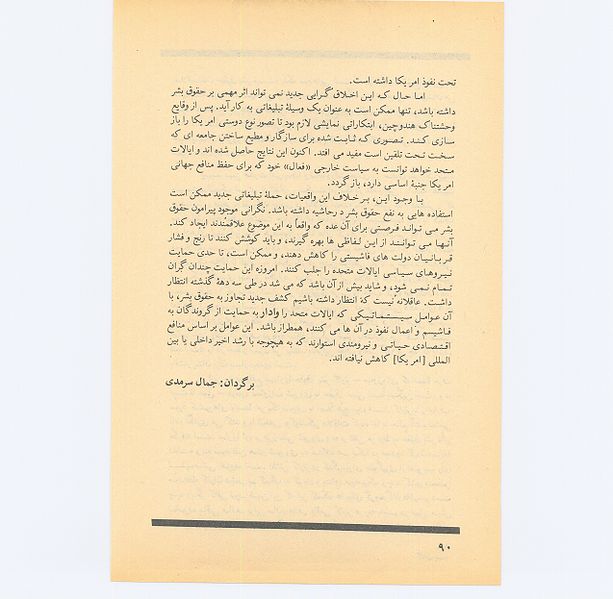 تحت نفوذ امریکا داشته است.
اما حال که این اخلاق گرایی جدید نمی تواند اثر مهمی بر حقوق بشر
داشته باشد، تنها ممکن است به عنوان یک وسیلۀ تبلیغاتی به کار آید. پس از وقایع
وحشتناک هندوچین، ابتکاراتی نمایشی لازم بود تا تصور نوع دوستی امریکا را باز
سازی کنند. تصوری که ثابت شده برای سازگار و مطیع ساختن جامعه ای که
سخت تحت تلقین است مفید می افتد. اکنون این نتایج حاصل شده اند و ایالات
متحد خواهد توانست به سیاست خارجی «فعال» خود که برای حفظ منافع جهانی
امریکا جنبۀ اساسی دارد، باز گردد.
با وجود این، بر خلاف این واقعیات، حملۀ تبلیغاتی جدید ممکن است
استفاده هایی به نفع حقوق بشر در حاشیه داشته باشد. نگرانی موجود پیرامون حقوق
بشر می تواند فرصتی برای آن عده که واقعاً به این موضوع علاقمندند ایجاد کند.
آنها می توانند از این لفاظی ها بهره گیرند، و باید کوشش کنند تا رنج و فشار
قربانیان دولت های فاشیستی را کاهش دهند، و ممکن است، تا حدی حمایت
نیروهای سیاسی ایالات متحده را جلب کنند. امروزه این حمایت چندان گران
تمام نمی شود، و شاید بیش از آن باشد که می شد در طی سه دهۀ گذشته انتظار
داشت. عاقلانه نیست که انتظار داشته باشیم کشف جدید تجاوز به حقوق بشر، با
آن عوامل سیستماتیکی که ایالات متحد را وادار به حمایت از گروندگان به
فاشیسم و اعمال نفوذ در آن ها می کنند، همطراز باشد. این عوامل بر اساس منافع
اقتصادی حیاتی و نیرومندی استوارند که به هیچوجه با رشد اخیر داخلی یا بین
المللی [امریکا] کاهش نیافته اند.
برگردان: جمال سرمدی
۹۰